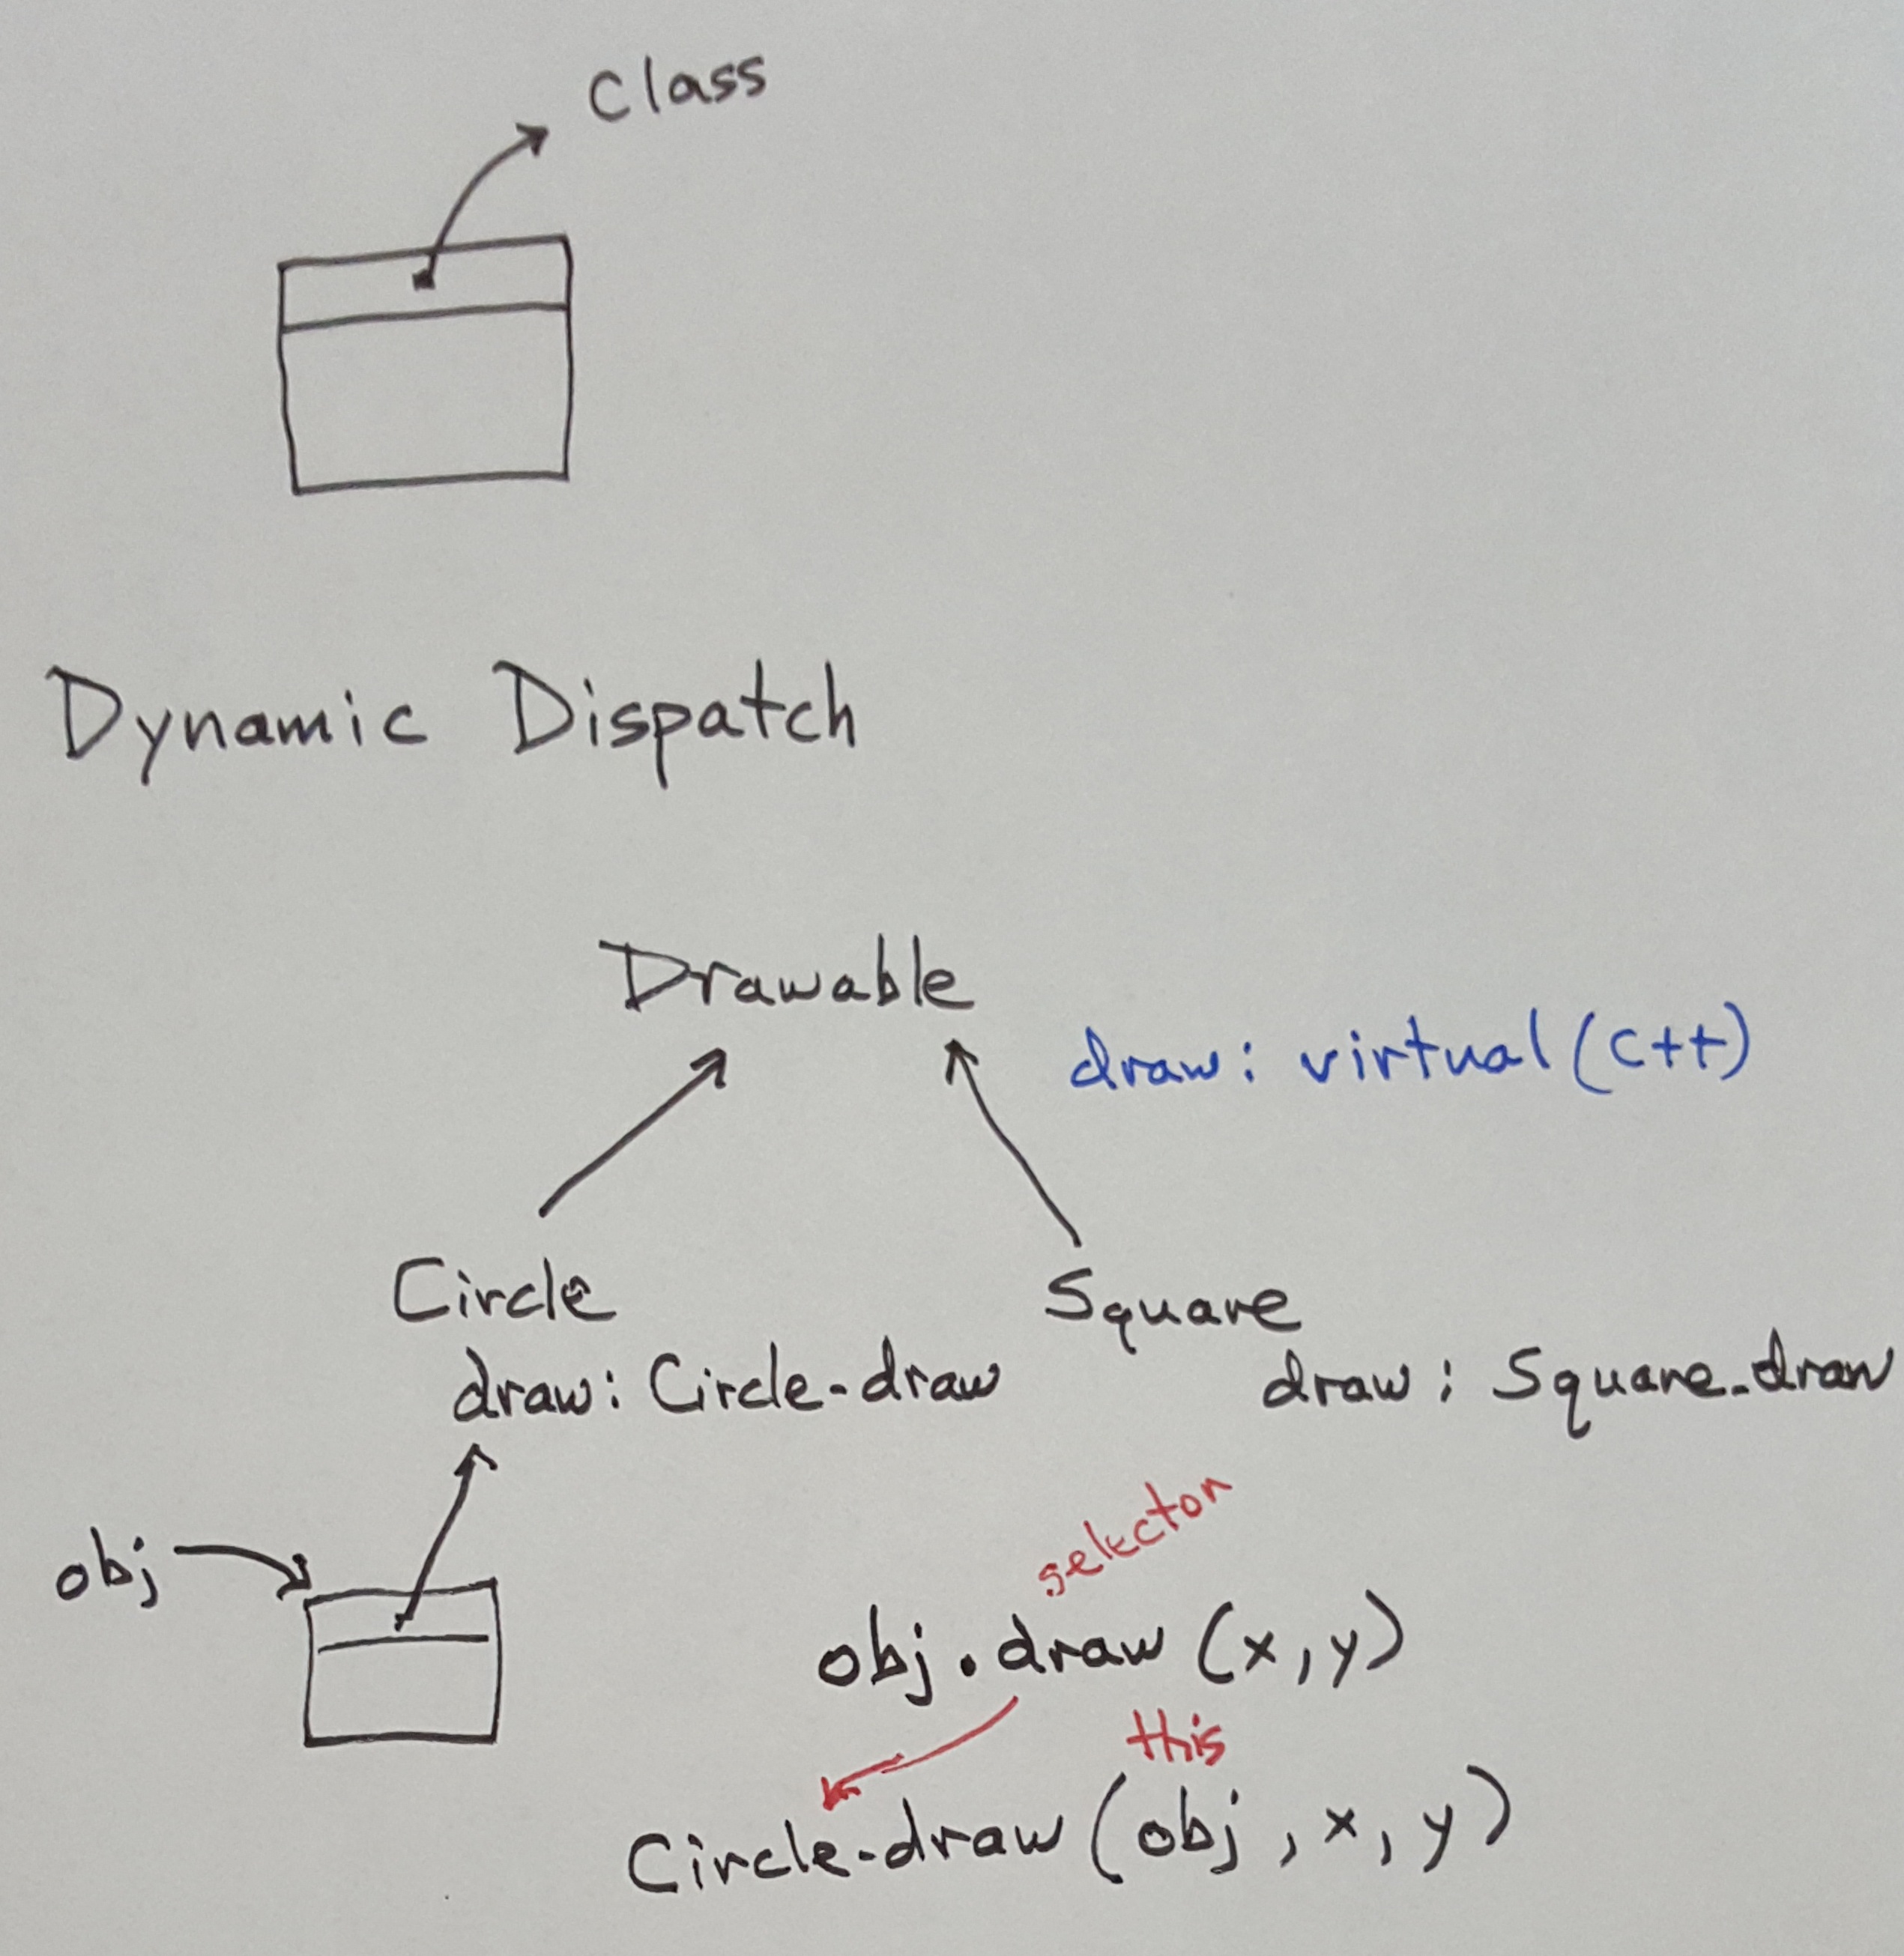 Class
Dynamic Dispatch
Drawable
draw: virtual (C++)
Circle
draw: Circle-draw
Square
draw: Square-draw
obj
selector
obj.draw (x,y)
this
Circle-draw (obj, x, y)